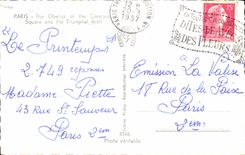 PARIS - The Obelisk of the Concorde
Square and the Triumphal Arch
"Le Printemps"
2.749 réponses
Madame Piette
43 Rue St Sauveur
Paris 2em
1957
15
DITES LE AVEC
DES FLEURS
Emission "La Valise"
17 Rue de la Paix
Paris
2em
Photo véritable